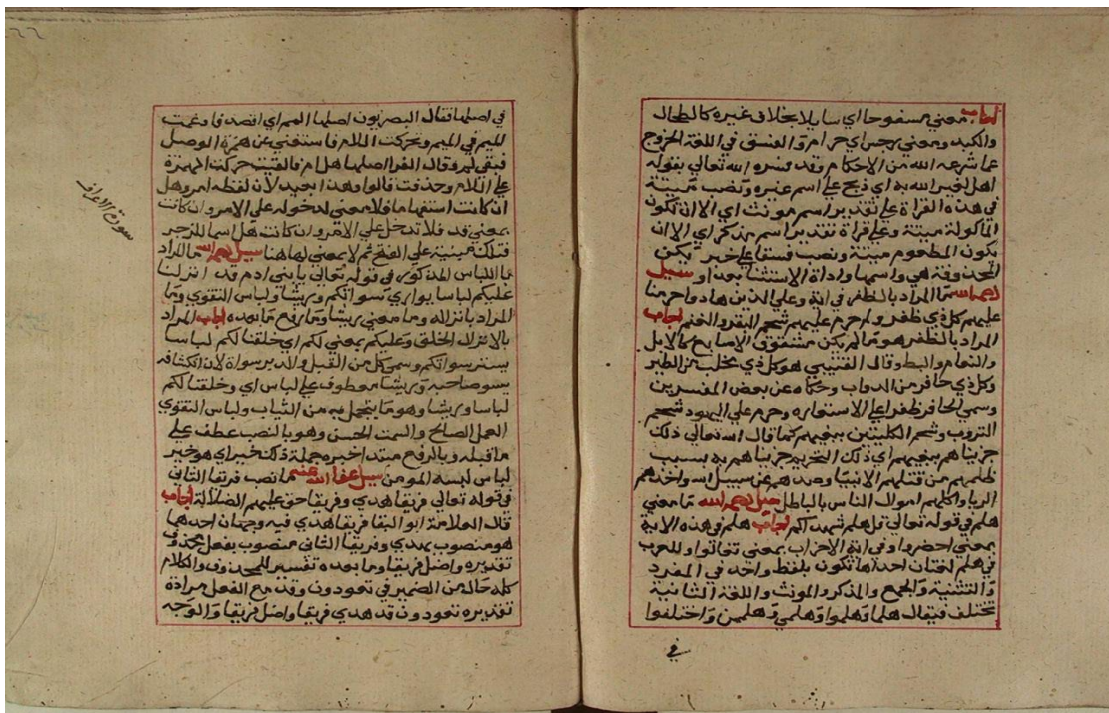 اجاب معني مسفوحا اي سايلا بخلاف غيره كالطحال
والكبد ومعني رجس اي حرام والفسق في اللغة الخروج
عما شرعه الله من الاحكام وقد فسره الله تعالي بقوله
اهل لغير الله به اي ذبح علي اسم غيره ونصب ميتة
في هذه القراة علي تقدير اسم مونث اي الا ان تكون
الماكولة ميتة وعلي قراة تقدير اسم مذكر اي الا ان
يكون المطعوم ميتة ونصب فسقا علي خبر يكن
المحذوفة هي واسمها واداة الاستثنا بعد او سيل
رحمه الله ما المراد بالظفر في اية وعلي الذين هادوا حرمنا
عليهم كل ذي ظفر ولم حرم عليهم شحم البقر والغنم اجاب
المراد بالظفر هو ما لم يكن مشقوق الاصابع كالابل
والنعام والبط وقال القتيبي هو كل ذي مخلب من الطير
وكل ذي حافر من الدواب وحكاه عن بعض المفسرين
وسمي الحافر ظفرا علي الاستعاره وحرم علي اليهود شحم
الثروب وشحم الكليتين ببغيهم كما قال الله تعالي ذلك
جزيناهم ببغيهم اي ذلك التحريم جزيناهم به بسبب
ظلمهم من قتلهم الانبيا وصدهم عن سبيل الله واخذهم
الربا واكلهم اموال الناس بالباطل سيل رحمه الله ما معني
هلم في قوله تعالي قل هلم شهداكم اجاب هلم في هذه الاية
بمعني احضروا وفي اية الاحزاب بمعني تعالوا وللعرب
في هلم لغتان احداها تكون بلفظ واحد في المفرد
والتثنية والجمع والمذكر والمونث واللغة الثانية
تختلف فيقال هلما وهلموا وهلمي وهلمن واختلفوا
في
في اصلها فقال البصريون اصلها المم اي اقصد فادغمت
الميم في الميم وتحركت اللام فاستغني عن همزة الوصل
فبقي لم وقال الفرا اصلها هل ام فالقيت حركت الهمزة
علي اللام وحذفت قالوا وهذا بعيد لان لفظه امر وهل
ان كانت استفهاما فلا معني لدخوله علي الامر وان كانت
بمعني قد فلا تدخل علي الامر وان كانت هل اسما للزجر
فتلك مبنية علي الفتح ثم لا معني لها هنا سيل رحمه الله ما المراد
ما اللباس المذكور في قوله تعالي يا بني ادم قد انزلنا
عليكم لباسا يواري سواتكم وريشا ولباس التقوي وما
المراد بانزاله وما معني ريشا وما رفع ما بعده اجاب المراد
بالانزال الخلق وعليكم بمعني لكم اي خلقنا لكم لباسا
يستر سواتكم وسمي كل من القبل والدبر سواة لان انكشافه
يسو صاحبه وريشا معطوف علي لباس اي وخلقنا لكم
لباسا وريشا وهو ما يتجمل به من الثياب ولباس التقوي
العمل الصالح والسمت الحسن وهو بالنصب عطف علي
ما قبله وبالرفع مبتدا خبره جملة ذلك خير اي هو خير
لباس لبسه المومن سيل عفا الله عنه ما نصب فريقا الثاني
في قوله تعالي فريقا هدي وفريقا حق عليهم الضلالة اجاب
قال العلامة ابو البقا فريقا هدي فيه وجهان احدهما
هو منصوب بهدي وفريقا الثاني منصوب بفعل محذوف
تقديره واضل فريقا وما بعده تفسير للمحذوف والكلام
كله حال من الضمير في تعودون وقد مع الفعل مرادة
تقديره تعودون قد هدي فريقا واضل فريقا والوجه
سورة الاعراف